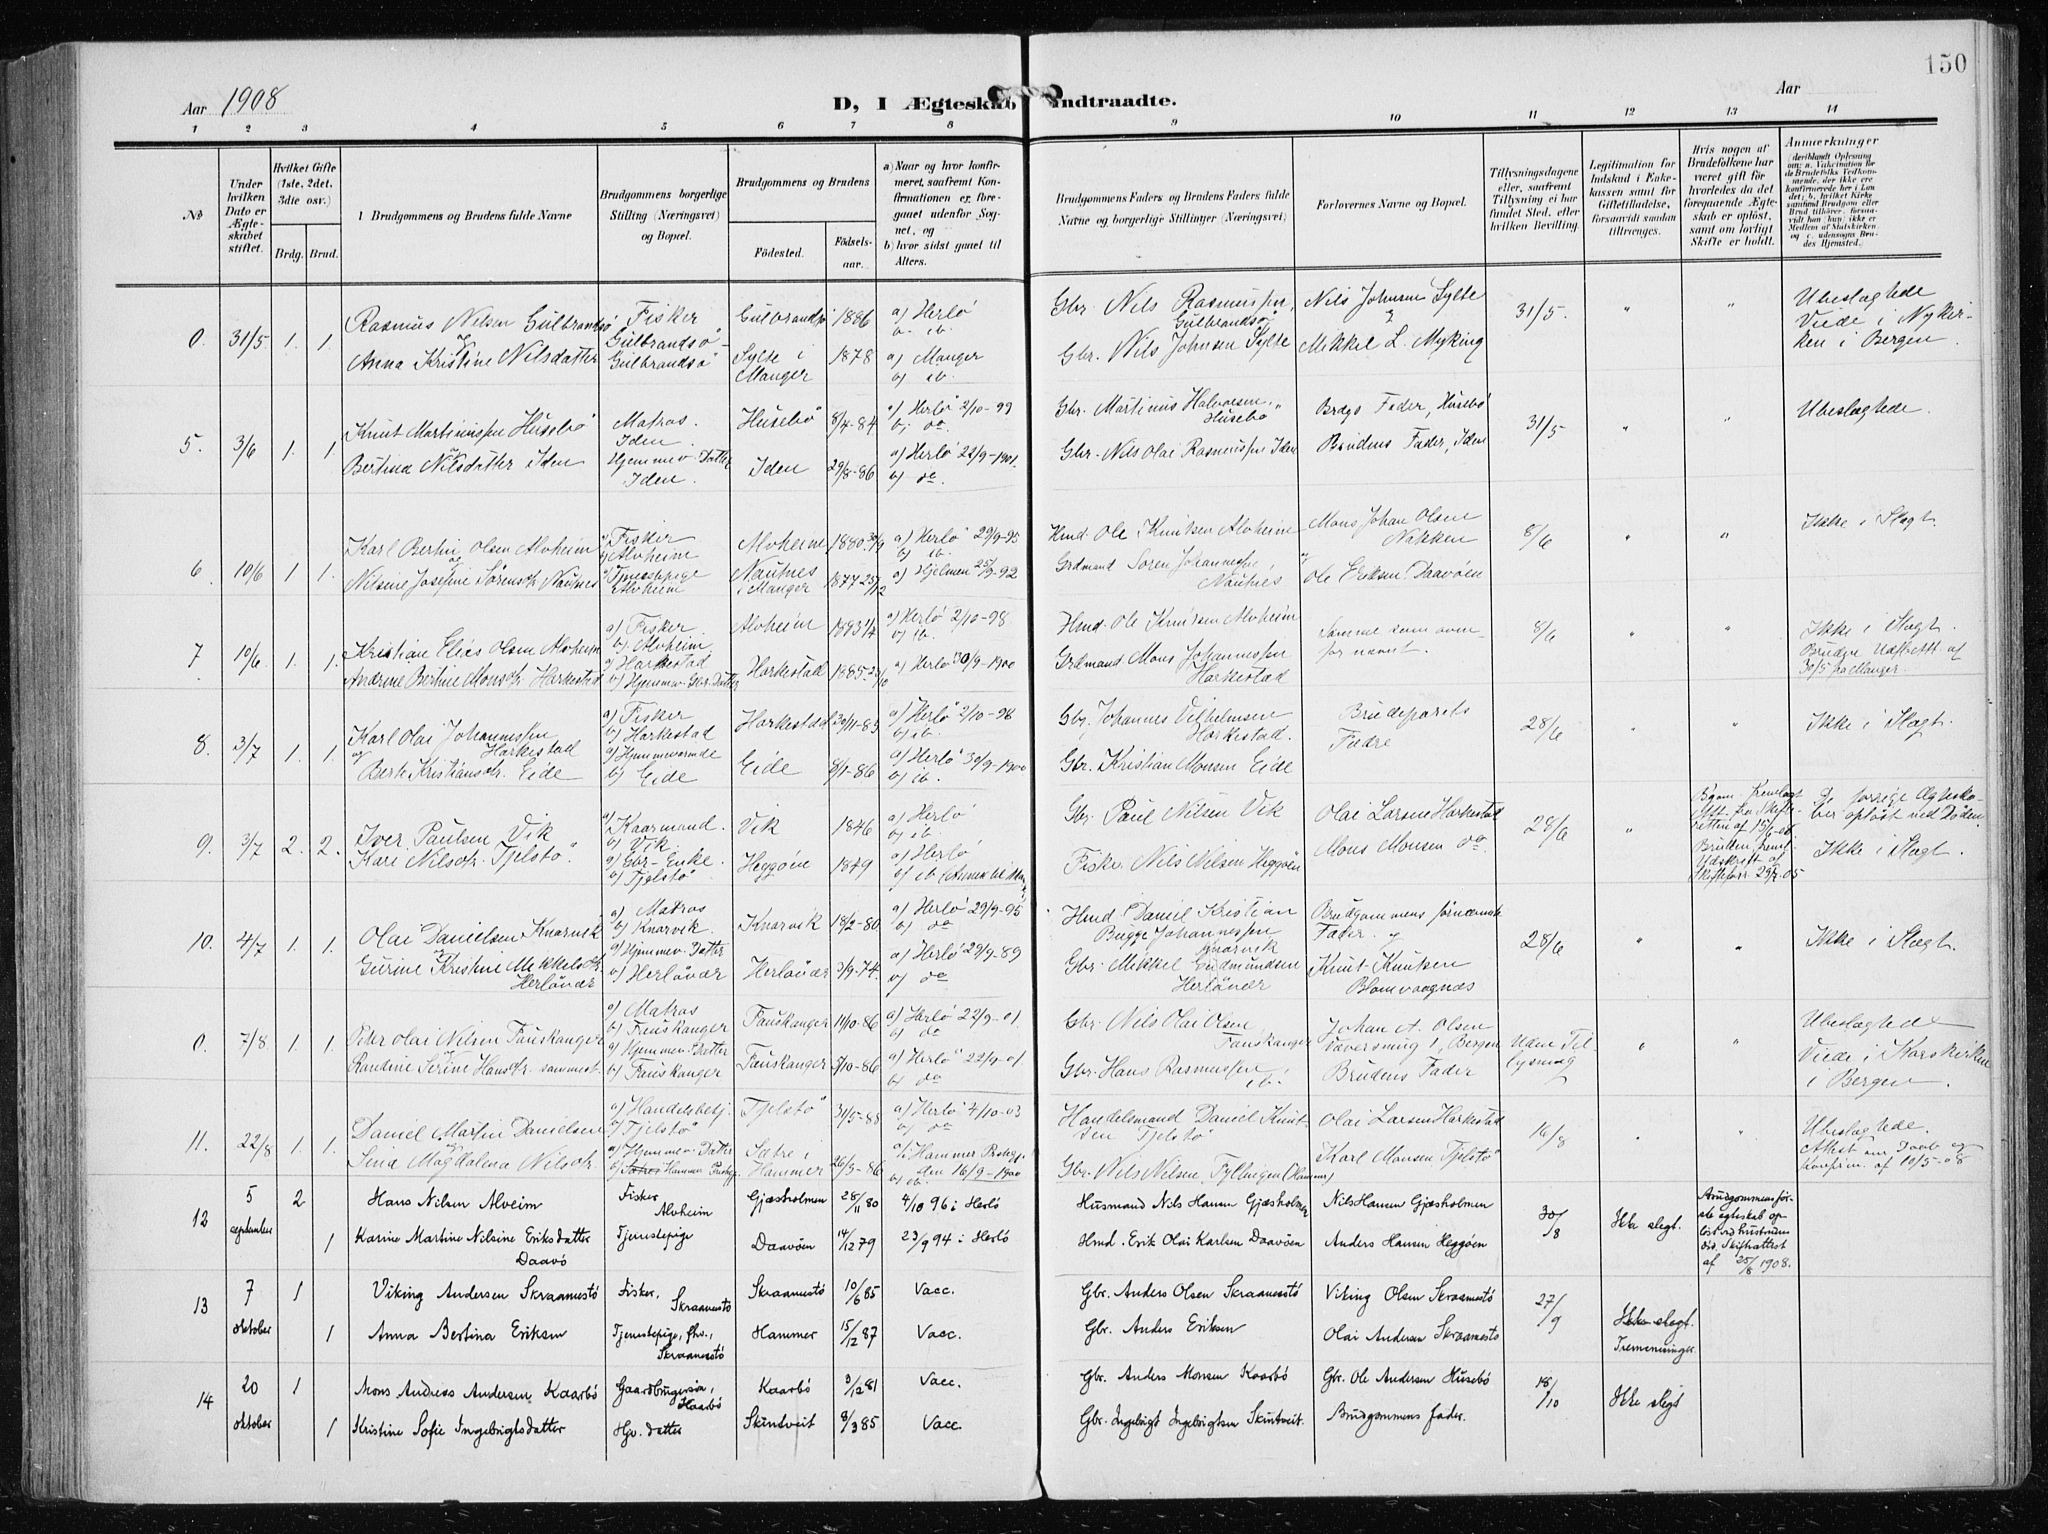 150
Aar 1908
D, I Ægteskab indtraadte.
Aar
1 2 3 4 5 6 7 8 9 10 11 12 13 14
No
Under hvilken Dato er Ægteskabet stiftet.
Hvilket Gifte (1ste, 2det, 3die osv.)
Brdg. Brud.
1 Brudgommens og Brudens fulde Navne
Brudgommens borgerlige Stilling (Næringsvei) og Bopæl.
Brudgommens og Brudens
Födested.
Födsels-aar.
a) Naar og hvor konfirmeret, saafremt Konfirmationen er foregaaet udenfor Sognet, og
b) hvor sidst gaaet til Alters.
Brudgommens Faders og Brudens Faders fulde Navne og borgerlige Stillinger (Næringsvei).
Forlovernes Navne og Bopæl.
Tillysningsdagene eller, saafremt Tillysning ei har fundet Sted, efter hvilken Bevilling.
Legitimation for Indskud i Enkekassen samt for Giftetilladelse, forsaavidt saadan tiltrænges.
Hvis nogen af Brudefolkene har været gift før hvorledes da det foregaaende Ægteskab er opløst, samt om lovligt Skifte er holdt.
Anmærkninger
0. 31/5 1. 1.
Rasmus Nilsen Gulbrandsö
og
Anna Kristine Nilsdatter
Fisker
Gulbrandsö
Gulbrandsö
Gulbrandsö 1886
a) Herlö
b. ib.
Sylte i
Manger 1878
a) Manger
b) ib.
Gbr. Nils Rasmussen,
Gulbrandsö
Gbr. Nils Johnsen Sylte
Nils Johnsen Sylte
&
Mikkel L. Myking
31/5. " "
Ubeslægtede
Viede i Nykir-
ken i Bergen.
5. 3/6 1. 1.
Knut Martinussen Husebö
og
Bertina Nilsdatter Iden
Matros.
Iden.
Hjemmev. Datter
Iden.
Husebö 8/4-84
a) Herlö 2/10-99
b) do.
Iden 29/8-86
a) Herlö 22/9-1901.
b) do.
Gbr. Martinus Halvorsen
Husebö
Gbr. Nils Olai Rasmussen Iden
Brdgs Fader, Husebö
Brudens Fader, Iden
31/5 " "
Ubeslægtede.
6. 10/6 1. 1.
Karl Bertin Olsen Alvheim
og
Nilsine Josefine Sørensdtr. Nautnes
a) Fisker
b) Alvheim
a) Tjenestepige
Alvheim
Alvheim 1880
a) Herlö 29/9-95
b) ib.
Nautnes
i Manger 1877 25/12
a) Hjelmen 25/9-92
Hmd. Ole Knutsen Alvheim
Grdmand Sören Johannessen
Nautnes
Mons Johan Olsen
Nakken
Ole Eriksen Daavöen
8/6 " "
Ikke i Slægt.
7 10/6 1. 1.
Kristian Elias Olsen Alvheim
Andrine Bertine Monsdtr. Harkestad
a) Fisker
b) Alvheim
a) Harkestad
b) Hjemmev. Gbr. Datter
Alvheim
a) Herlö 2/10-98
b) ib.
Harkestad 1885
a) Herlö 30/9-1900
Hmd. Ole Knutsen Alvheim
Grdmand Mons Johannessen
Harkestad
Samme som oven-
for nævnt.
8/6 " "
Ikke i Slægt.
30/5 fra Manger
8. 3/7 1. 1.
Karl Olai Johannessen
Harkestad
og
Berte Kristiansdtr. Eide
a) Fisker
b) Harkestad
a) Hjemmeværende
b) Eide
Harkestad
a) Herlö 2/10-98
b) ib.
Eide 8/1-86
a) Herlö 30/9-1900
b) ib.
Gbr. Johannes Vilhelmsen
Harkestad.
Gbr. Kristian Monsen Eide
Brudeparets
Fædre
28/6 "
Ikke i Slægt.
9. 3/7 2. 2.
Iver Paulsen Vik
Kari Nilsdtr. Tjelstö
a) Kaarmand.
b) Vik
a) Gbr-Enke.
b) Tjelstö
Vik 1846
a) Herlö
b) ib.
Heggöen 1849
a) Herlö
b) ib
Gbr. Paul Nilsen Vik
Fisker Nils Nilsen Heggöen
Olai Larsen Harkestad
Mons Monsen do
28/6 "
Ikke i Slægt.
10. 4/7 1. 1.
Olai Danielsen Knarvik
og
Gurine Kristine Mikkelsdtr.
Herlövær
a) Matros
b) Knarvik
a) Hjemmev. Datter
b) Herlövær
Knarvik 18/2-80
a) Herlö 29/9-95
b) do
Herlövær 3/9-74.
a) Herlö 29/9-89
b) do
Hmd. Daniel Kristian
Bugge Johannessen
Knarvik
Gbr. Mikkel Gudmundsen
Herlövær
Brudgommens förnævnte
Fader. og
Knut Knutsen
Blomvaagnæs
28/6 " "
Ikke i Slægt.
0. 7/8 1. 1.
Peter Olai Nilsen Fauskanger
og
Randine Serine Hansdtr. sammest.
a) Matros
b) Fauskanger
a) Hjemmev. Datter
b) Fauskanger
Fauskanger 11/10-86
a) Herlö 22/9-01.
b) do
Fauskanger 5/10-86
a) Herlö 22/9-01.
b) do
Gbr. Nils Olai Olsen
Fauskanger
Gbr. Hans Rasmussen
ib.
Johan A. Olsen
Vaversmug 1, Bergen
Brudens Fader
Uden Til-
lysning " "
Ubeslægtede
Viede i Korskirken
i Bergen.
11. 22/8 1. 1.
Daniel Martin Danielsen
og
Sina Magdalena Nilsdtr.
a) Handelsbetj.
b) Tjelstö
a) Hjemmev. Datter
b) Hammer Prstgj.
Tjelstö 31/5-88
a) Herlö 4/10-03
b) do
Sætre i
Hammer 26/3-86
a) i Hammer Prstgj.
den 16/9-1900
b) ib.
Handelsmand Daniel Knut-
sen Tjelstö
Gbr. Nils Nilsen, Fyllingen (Hammer)
Olai Larsen Harkestad
Karl Monsen Tjelstö
16/8 " "
Ubeslægtede.
Attest om Daab og
Konfirm. af 19/5-08
12 5 september 2
Hans Nilsen Alveim
Fisker
Alvheim
Gjæsholmen 28/11 80
4/10 96 i Herlö
Husmand Nils Hansen Gjæsholmen
Nils Hansen Gjæsholmen
30/8
Ikke slegt.
Brudgommens för-
ste egteskab op-
löst ved hustruens
död. Skifteattest
af 25/8 1908.
1
Karine Martine Nilsine Eriksdatter
Daavö
Tjenestepige
Daavöen 14/12 79
23/9 94 i Herlö
Hmd. Erik Olai Karlsen Daavöen
Anders Hansen Heggöen
13 7 oktober 1
Viking Andersen Skraamestö
Fisker,
Skraamestö
Skraamestö 10/6 85
Vacc.
Gbr. Anders Olsen Skraamestö
Viking Olsen Skraamestö
27/9
Ikke slegt.
Tremenninger
1
Anna Bertina Eriksen
Tjenestepige, fhv.,
Skraamestö
Hammer 15/12 87
Vacc.
Gbr. Anders Eriksen
Olai Andersen Skraamestö
14 20 oktober 1
Mons Andreas Andersen Kaarbö
Gaardbrugersön,
Kaarbö
Kaarbö 3/12 81
Vacc.
Gbr. Anders Monsen Kaarbö
Gbr. Ole Andersen Husebö
18/10
Ikke slegt
1
Kristine Sofie Ingebrigtsdatter
Hjv. datter
Skintveit 8/3 85
Vacc.
Gbr. Ingebrigt Ingebrigtsen Skintveit.
Brudgommens fader.